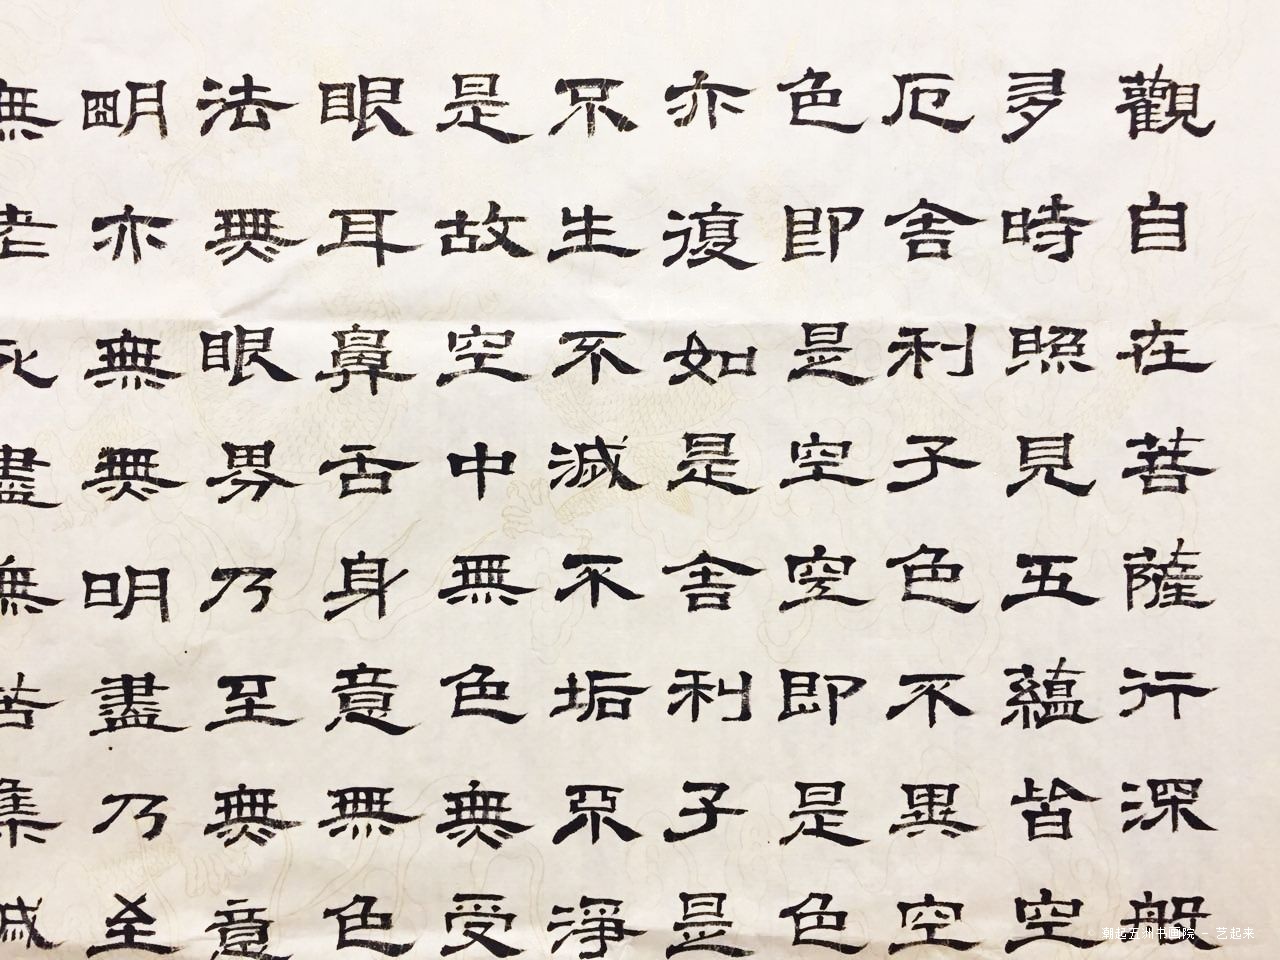 觀自在菩薩行深般
多時照見五蘊皆空
厄舍利子色不異空
色即是空空即是色
亦復如是舍利子是
不生不滅不垢不淨
是故空中無色無受
眼耳鼻舌身意無色
法無眼界乃至無意
明亦無無明盡乃至
無老死盡無苦集滅
朝起五洲书画院 - 艺起来